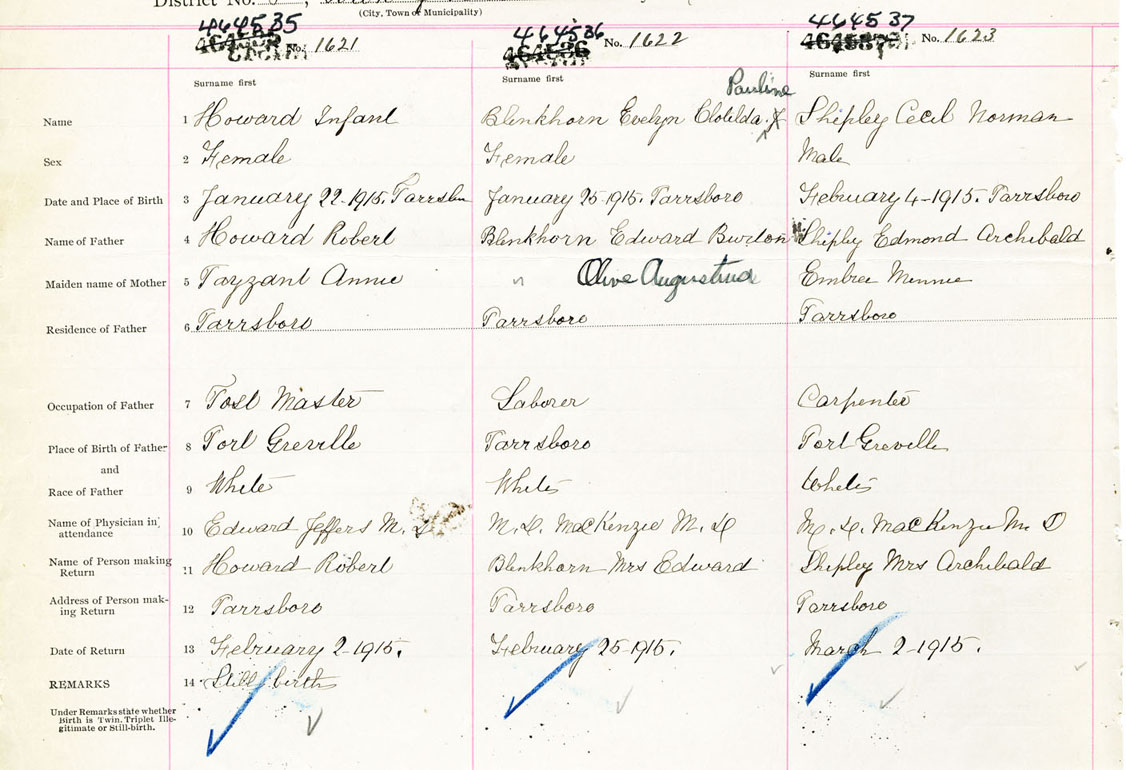 District No.
(City, Town of Municipality)
464535 464536 464537
No. 1621 No. 1622 No. 1623
Surname first Surname first Surname first
Pauline
Name 1 Howard Infant Blenkhorn Evelyn Clotilda Shipley Cecil Norman
Sex 2 Female Female Male
Date and Place of Birth 3 January 22-1915. Parrsboro January 25-1915. Parrsboro February 4-1915. Parrsboro
Name of Father 4 Howard Robert Blenkhorn Edward Burton Shipley Edmond Archibald
Maiden name of Mother 5 Tayzant Annie " Olive Augustine Embree Minnie
Residence of Father 6 Parrsboro Parrsboro Parrsboro
Occupation of Father 7 Post Master Laborer Carpenter
Place of Birth of Father 8 Port Greville Parrsboro Port Greville
and
Race of Father 9 White White White
Name of Physician in attendance 10 Edward Jeffers M. D. M. D. MacKenzie M. D M. D. MacKenzie M. D
Name of Person making Return 11 Howard Robert Blenkhorn Mrs Edward Shipley Mrs Archibald
Address of Person making Return 12 Parrsboro Parrsboro Parrsboro
Date of Return 13 February 2-1915. February 25-1915. March 2-1915.
REMARKS 14 Still birth
Under Remarks state whether
Birth is Twin, Triplet Ille-
gitimate or Still-birth.